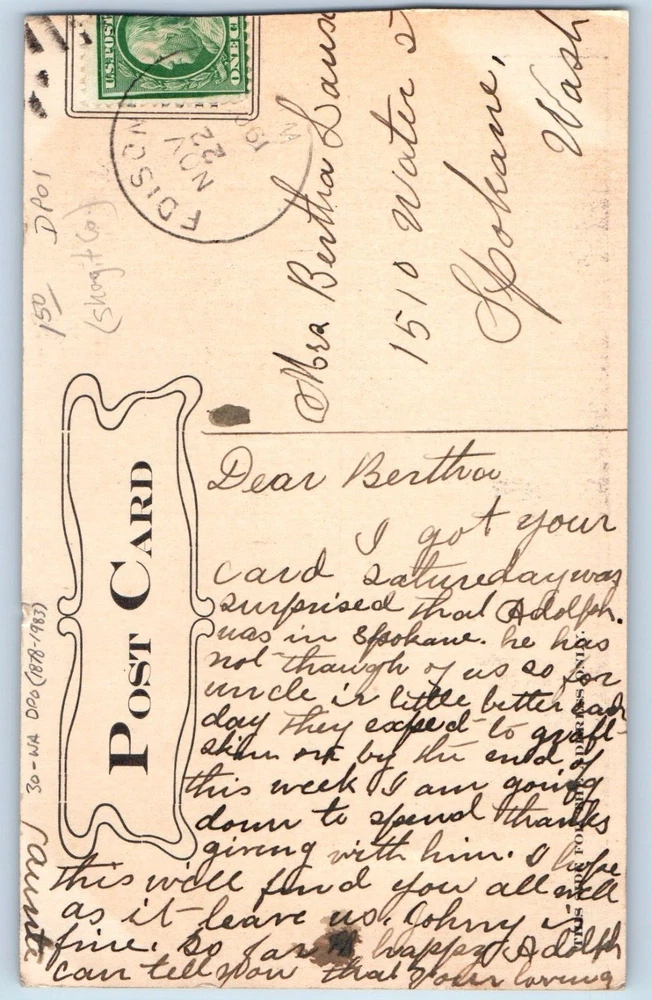 U.S. POST
ONE C
EDISON
NOV
22
19
W
150 DPO1
(Skagit Co.)
30-WA DPO (1878-1983)
POST CARD
THIS SIDE FOR THE ADDRESS ONLY.
Mrs Bertha Laus
1510 Water S
Spokane,
Wash
Dear Bertha
I got your
card satureday was
surprised that Adolph.
was in Spokane. he has
not though of us so far
uncle is little better each
day they exped to graft
skin on by the end of
this week I am going
down to spend thanks
giving with him. I hope
this will find you all well
as it leave us. Johny is
fine. so far happy Adolph
can tell you that your loving
aunt